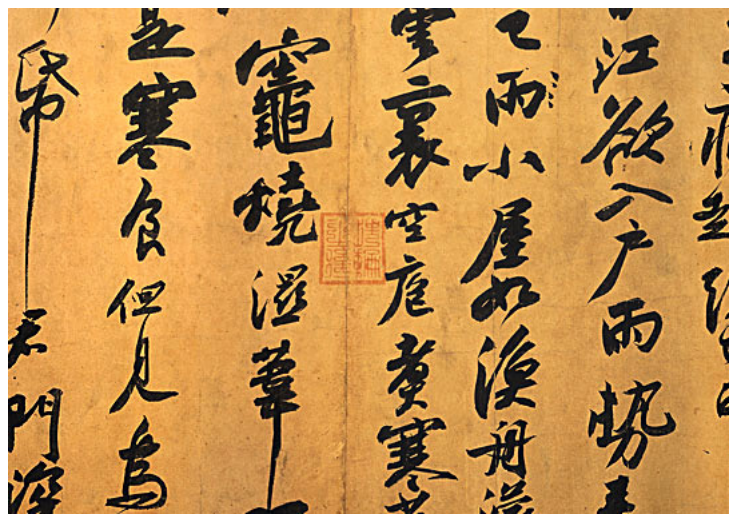 病起
江欲入戶雨勢
已雨小屋如漁舟濛
雲裏空庖煮寒
竈燒濕葦
是寒食但見烏
帋君門深